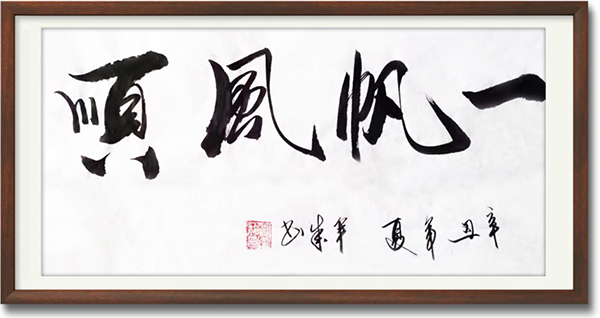 一帆風順
辛丑年夏 书